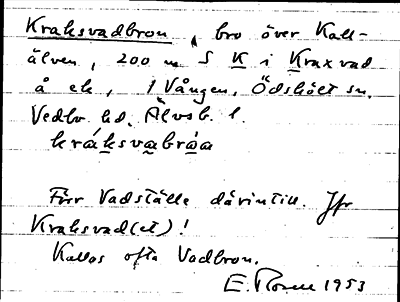 Kraksvadbron, bro över Kall-
älven, 200 m S K i Kraxvad
å ek, 1 Vången, Ödskölt sn,
Vedbo hd. Älvsb. l.
kráksvabråa
Förr vadställe därintill. Jfr
Kraksvad(et)!
Kallas ofta Vadbron.
E. Rosell 1953